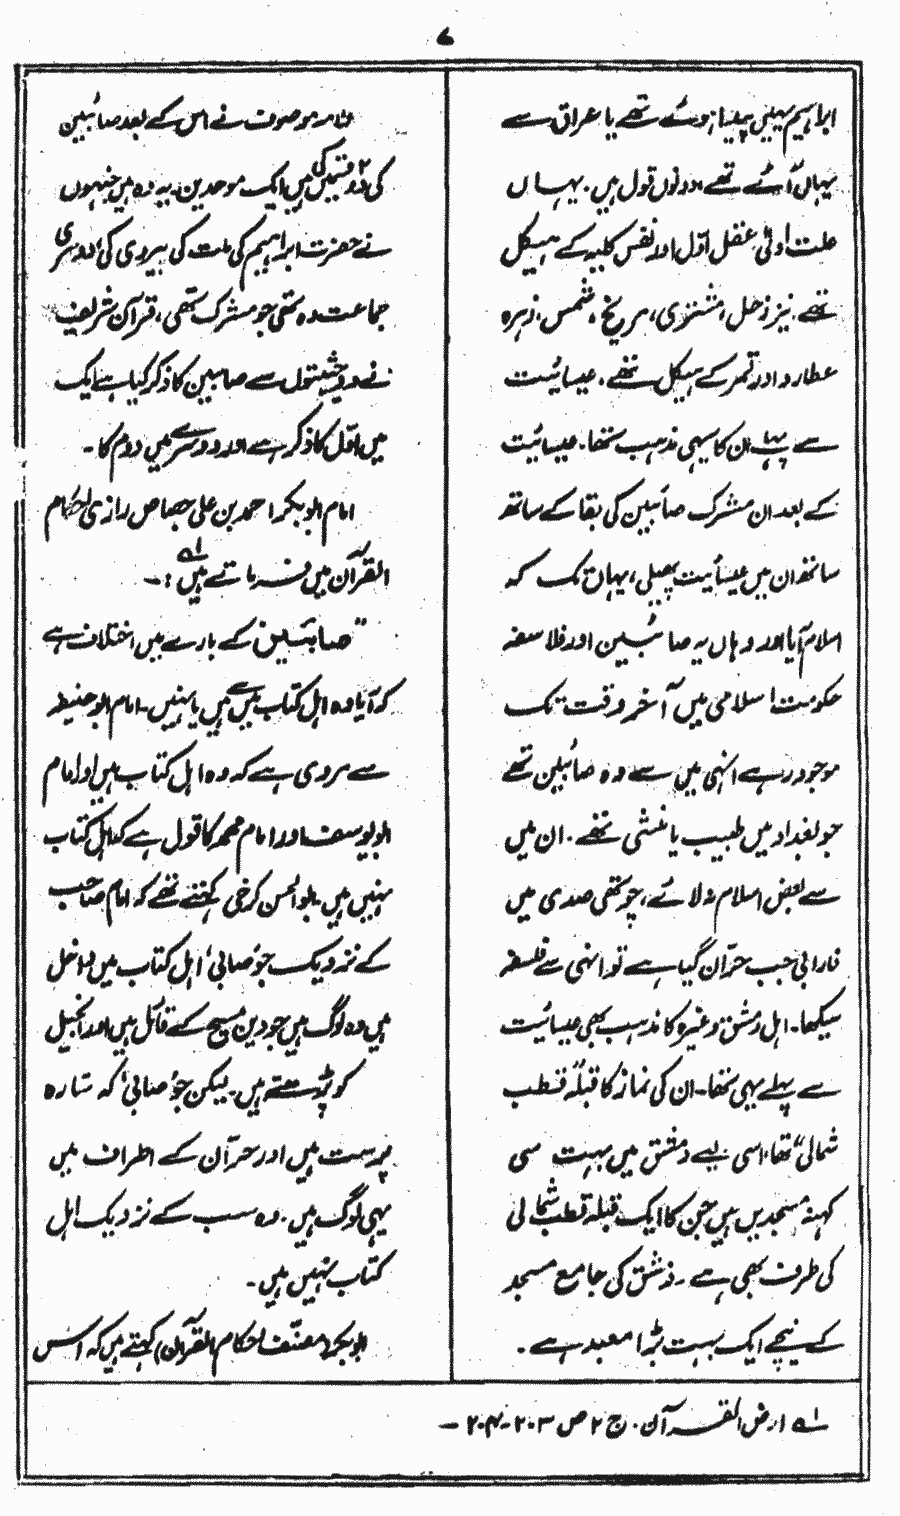 ۷
ابراہیم یہیں پیدا ہوئے تھے یا عراق سے
یہاں آئے تھے، دونوں قول ہیں۔ یہاں
علت اولیٰ عقل اول اور نفس کلیہ کے ہیکل
تھے۔ نیز زحل، مشتری، مریخ، شمس، زہرہ
عطارد اور قمر کے ہیکل تھے۔ عیسائیت
سے پہلے ان کا یہی مذہب تھا۔ عیسائیت
کے بعد ان مشرک صائبین کی بقا کے ساتھ
ساتھ ان میں عیسائیت پھیلی، یہاں تک کہ
اسلام آیا اور وہاں یہ صائبین اور فلاسفہ
حکومت اسلامی میں آخر وقت تک
موجود رہے انہی میں سے وہ صائبین تھے
جو بغداد میں طبیب یا منشی تھے۔ ان میں
سے بعض اسلام لائے، چوتھی صدی میں
فارابی جب حرّان گیا ہے تو انہی سے فلسفہ
سیکھا۔ اہل دمشق وغیرہ کا مذہب بھی عیسائیت
سے پہلے یہی تھا۔ ان کی نماز کا قبلہ "قطب
شمالی" تھا، اسی لیے دمشق میں بہت سی
کہنہ مسجدیں ہیں جن کا ایک قبلہ قطب شمالی
کی طرف بھی ہے۔ دمشق کی جامع مسجد
کے نیچے ایک بہت بڑا معبد ہے۔
علامہ موصوف نے اس کے بعد صائبین
کی دو قسمیں کی ہیں ایک موحدین۔ یہ وہ ہیں جنہوں
نے حضرت ابراہیم کی ملت کی پیروی کی، دوسری
جماعت وہ تھی جو مشرک تھی، قرآن شریف
نے دو حیثیتوں سے صابئین کا ذکر کیا ہے ایک
میں اوّل کا ذکر ہے اور دوسرے میں دوم کا۔
امام ابوبکر احمد بن علی جصاص رازی احکام
القرآن میں فرماتے ہیں لہ :۔
"صابئین کے بارے میں اختلاف ہے
کہ آیا وہ اہل کتاب میں سے ہیں یا نہیں۔ امام ابوحنیفہ
سے مروی ہے کہ وہ اہل کتاب ہیں اور امام
ابویوسف اور امام محمد کا قول ہے کہ اہل کتاب
نہیں ہیں۔ ابوالحسن کرخی کہتے تھے کہ امام صاحب
کے نزدیک جو صابی، اہل کتاب میں داخل
ہیں وہ لوگ ہیں جو دین مسیح کے قائل ہیں اور انجیل
کو پڑھتے ہیں۔ لیکن جو صابی، کہ ستارہ
پرست ہیں اور حرّان کے اطراف میں
یہی لوگ ہیں۔ وہ سب کے نزدیک اہل
کتاب نہیں ہیں۔
ابوبکر (مصنّف احکام القرآن) کہتے ہیں کہ اس
لہ ارض القرآن۔ ج ۲ ص ۲۰۳۔۲۰۴۔